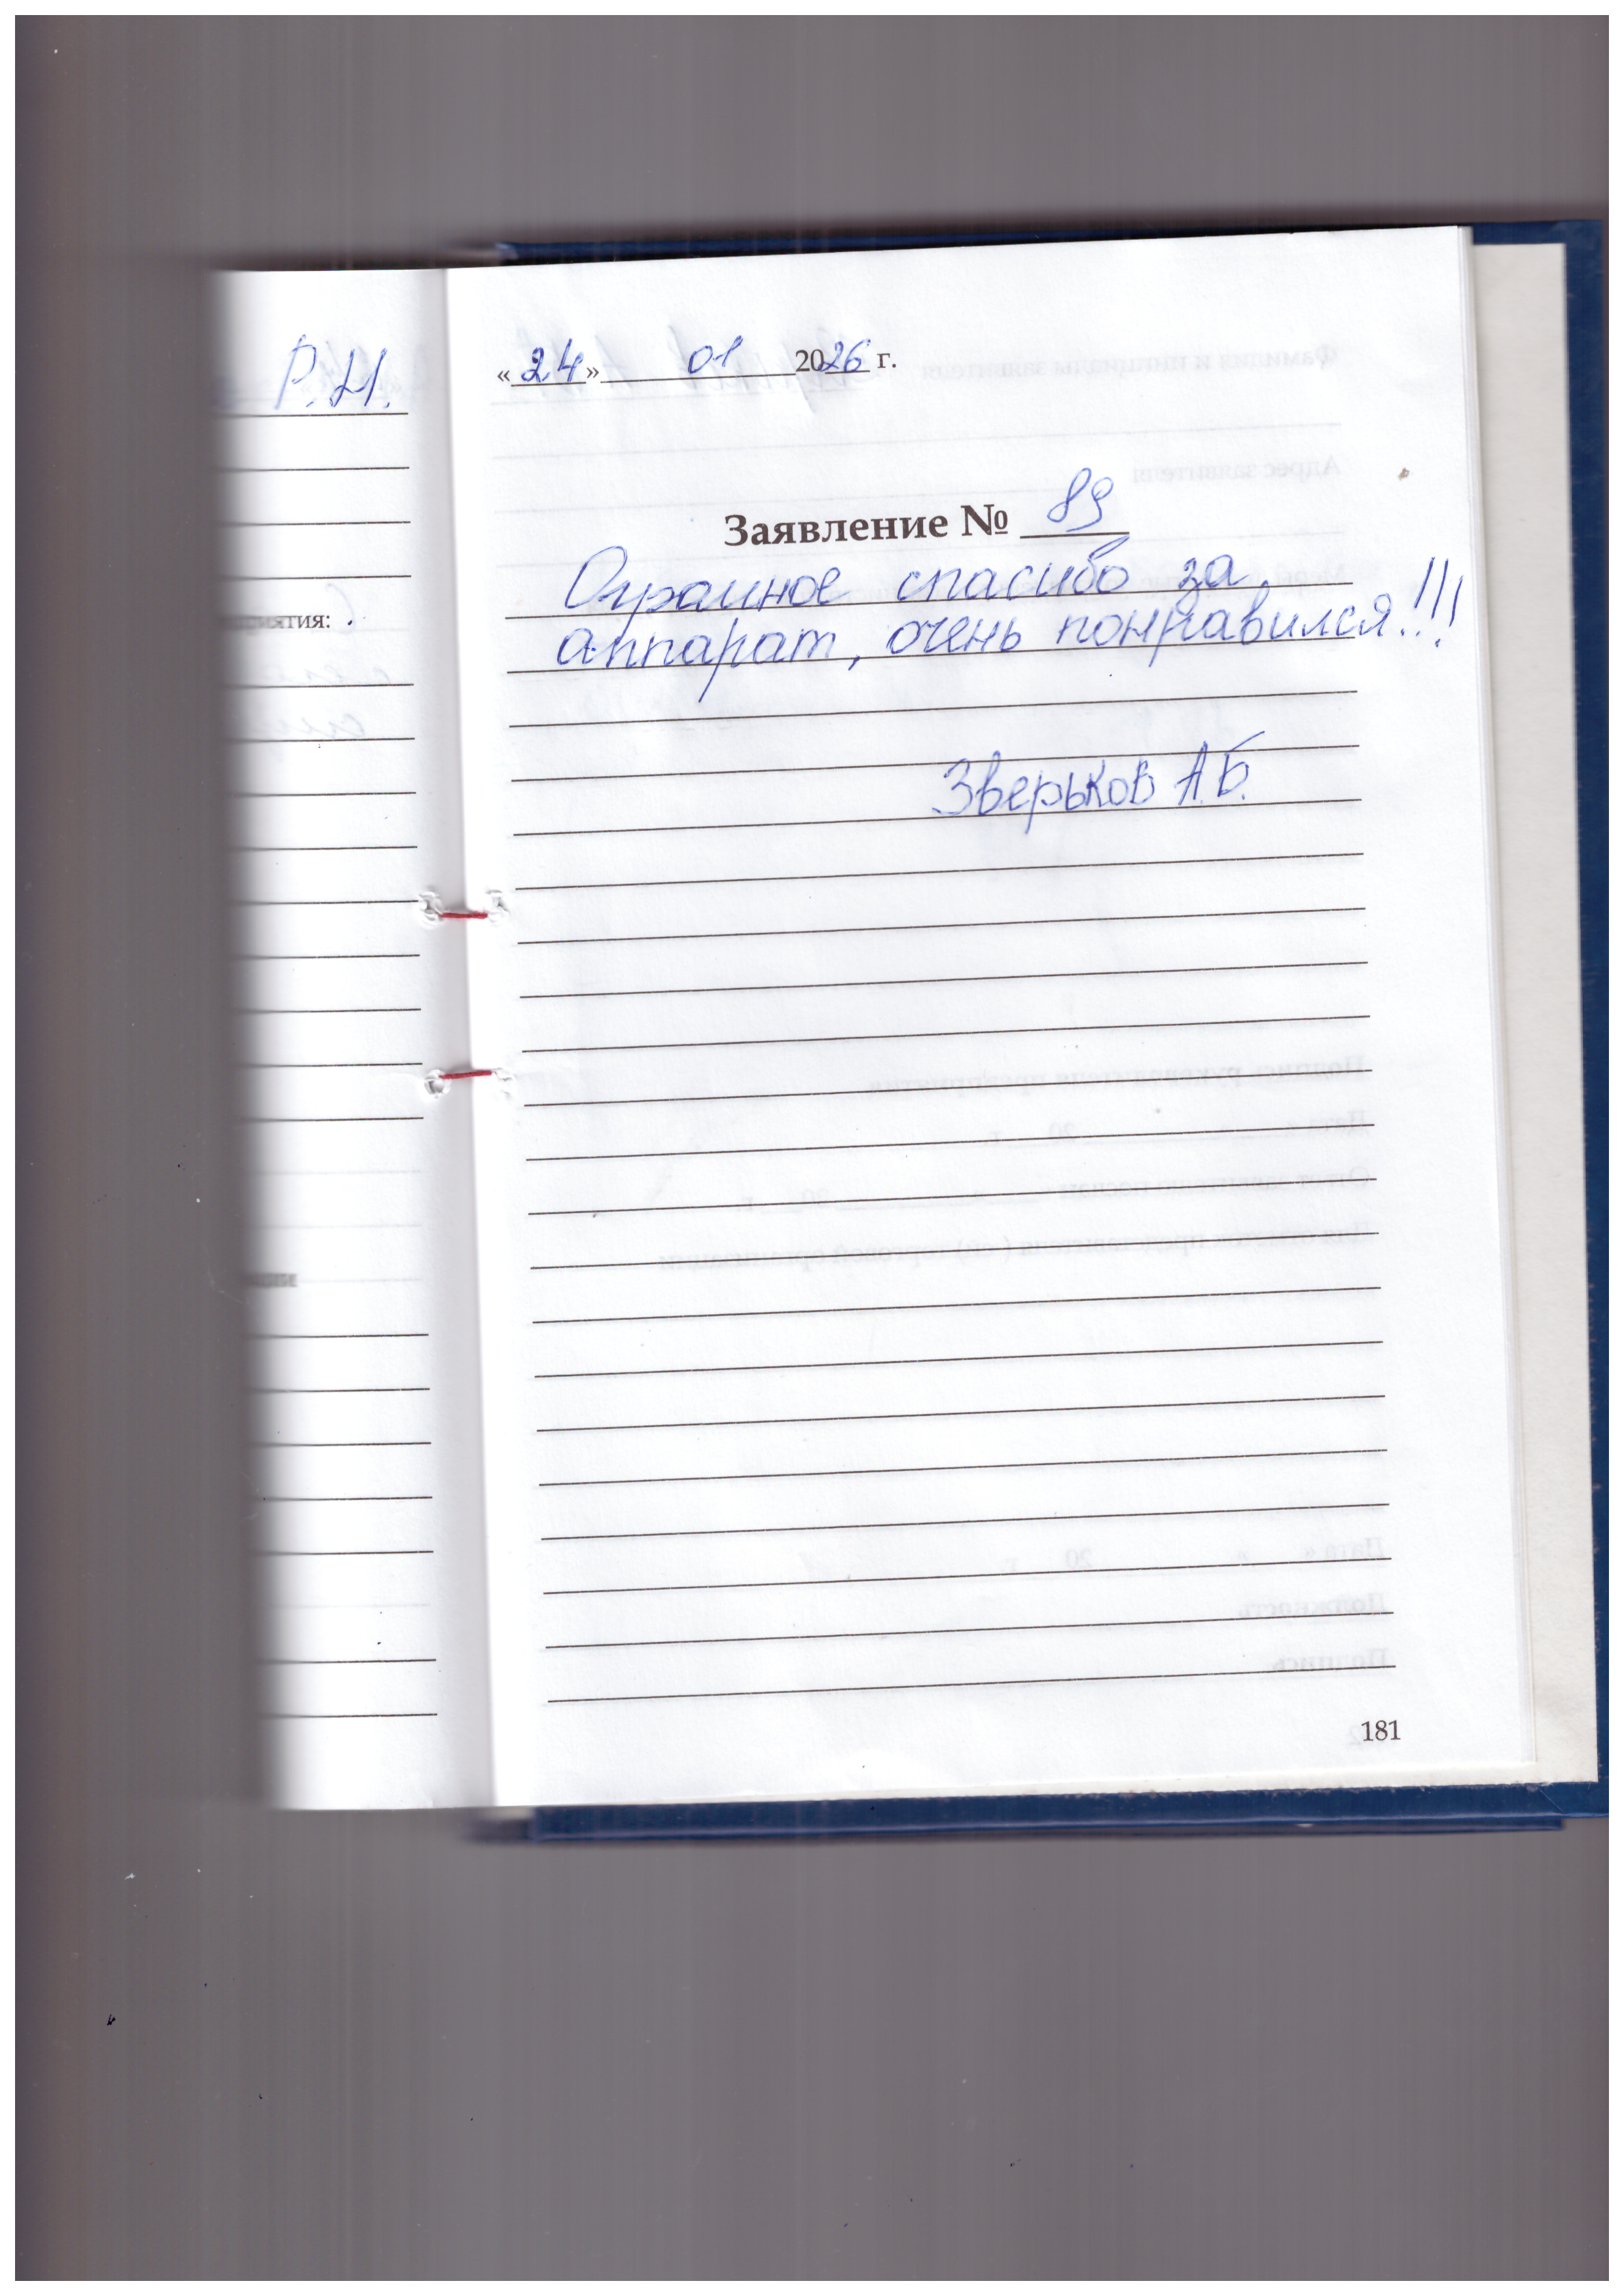 Р.Н.
приятия:
«24» 01 2026 г.
Заявление № 89
Огромное спасибо за
аппарат, очень понравился!!!
Зверьков А.Б.
181